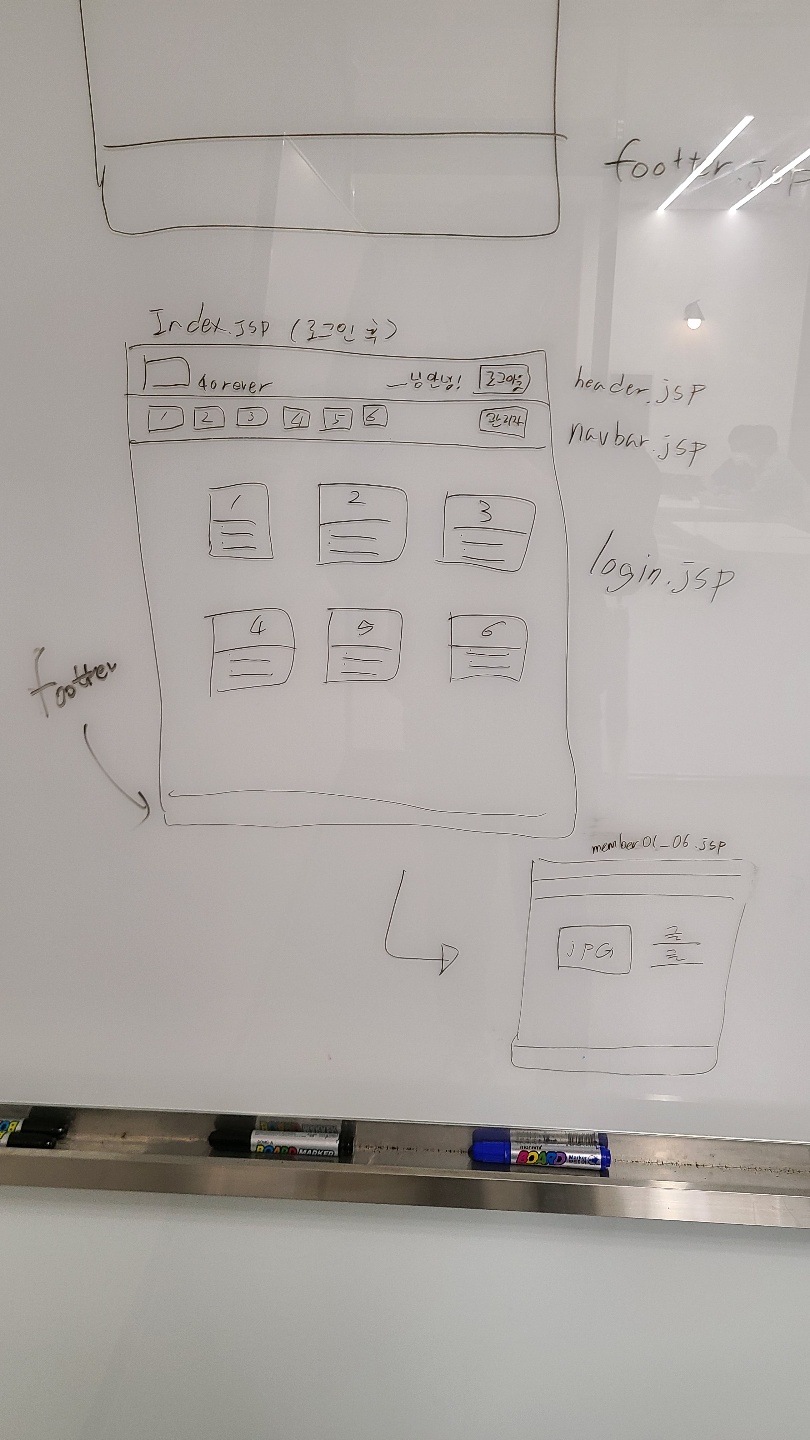 footter.jsp
Index.jsp (로그인 후)
4orever
_님안녕! 로그아웃
header.jsp
1 2 3 4 5 6
관리자
navbar.jsp
1 2 3
login.jsp
4 5 6
footter
member01_06.jsp
JPG
글
글
BOARD MARKER
BOARD